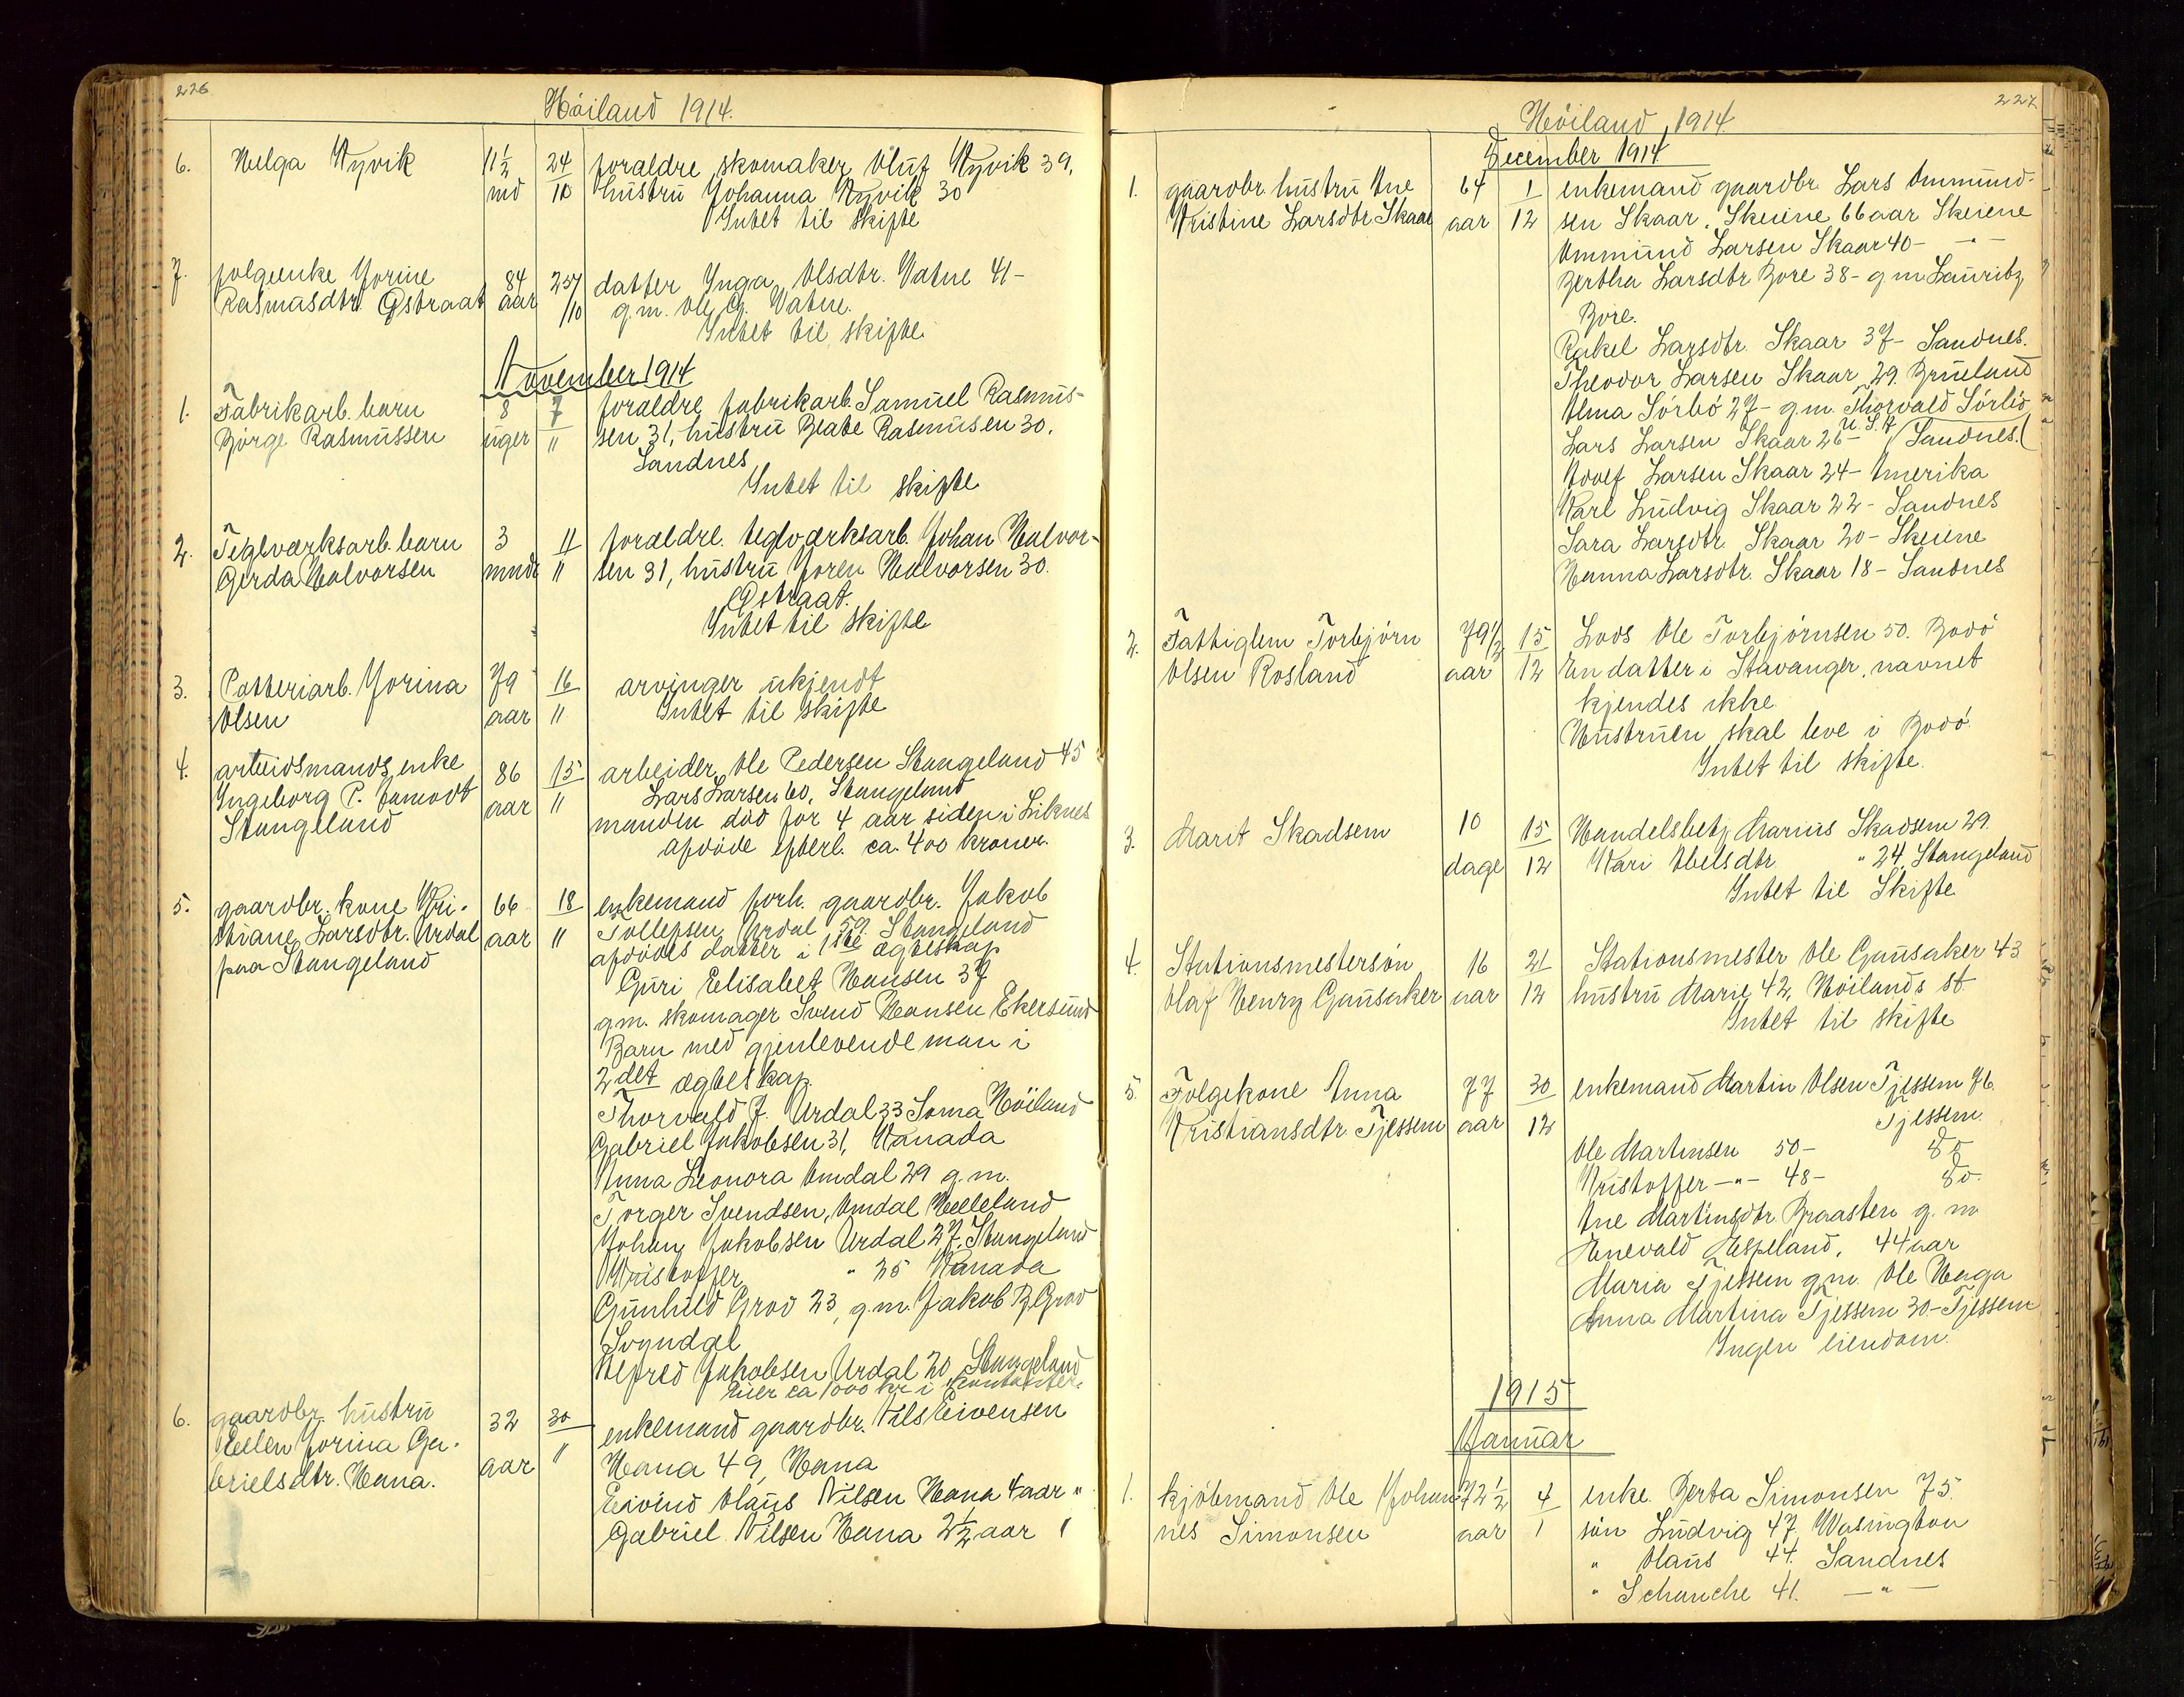 226
Höiland 1914.
6. Helga Kyvik 11½ 24 foraldre skomaker Oluf Kyvik 39,
md 10 hustru Johanna Kyvik 30
Intet til skifte
7. folgeenke Jorine 84 25 datter Inga Olsdtr. Vatne 41-
Rasmusdtr. Gstraat aar /10 g.m. Ole G. Vatne.
Intet til skifte.
November 1914
1. Fabrikarb. barn 8 7 foraldre fabrikarb. Samuel Rasmus-
Börge Rasmussen uger 11 sen 31, hustru Beate Rasmusen 30.
Sandnes
Intet til skifte
2. Teglværksarb. barn 3 11 foraldre. teglværksarb. Johan Halvor-
Gerda Halvorsen mndr 11 sen 31, hustru Joren Halvorsen 30.
Gstraat.
Intet til skifte
3. Potteriarb. Jorina 79 16 arvinger ukjendt
Olsen aar 11 Intet til skifte
4. arbeidsmands enke 86 15 arbeider Ole Pedersen Stangeland 45
Ingeborg P. Aamodt aar 11 Lars Larsen 60, Stangeland
Stangeland manden död for 4 aar siden i Liknes
afdöde efterl. ca. 400 kroner.
5. gaardbr. kone Kri- 66 18 enkemand forh. gaardbr. Jakob
stiane Larsdtr. Urdal aar 11 Tollefsen Urdal 59. Stangeland
paa Stangeland afdödes datter i 1ste ægteskap
Guri Elisabet Hansen 37
g.m. skomager Svend Hansen Ekersund
Barn med gjenlevende man i
2det ægteskap.
Thorvald J. Urdal 33 Soma Höiland
Gabriel Jakobsen 31, Kanada
Anna Leonora Omdal 29 g.m.
Torger Svendsen, Omdal Helleland
Johan Jakobsen Urdal 27, Stangeland
Kristoffer " 25 Kanada
Gunhild Grov 23, g.m. Jakob B. Grov
Sogndal
Alfred Jakobsen Urdal 20 Stangeland
Eier ca 1000 kr i kontanter.
6. gaardbr. hustru 32 30 enkemand gaardbr. Nils Eivensen
Ellen Jorina Ga- aar 11 Hana 49, Hana
brielsdtr. Hana. Eivind Olaus Nilsen Hana 4 aar "
Gabriel Nilsen Hana 2½ aar "
227
Höiland 1914
December 1914
1. gaardbr. hustru Ane 64 1 enkemand gaardbr. Lars Ommund-
Kristine Larsdtr. Skaar aar 12 sen Skaar, Skeiene 66 aar Skeiene
Ommund Larsen Skaar 40 - " -
Bertha Larsdtr Bore 38 - g m Lauritz
Bore.
Rakel Larsdtr. Skaar 37 - Sandnes.
Theodor Larsen Skaar 29. Brueland
Alma Sörbö 27 - g.m. Thorvald Sörbö
Lars Larsen Skaar 26 - U.S.A (Sandnes.(
Adolf Larsen Skaar 24 - Amerika
Karl Ludvig Skaar 22 - Sandnes
Sara Larsdtr. Skaar 20 - Skeiene
Hanna Larsdtr. Skaar 18 - Sandnes
2. Fattiglem Torbjörn 79½ 15 Lods Ole Torbjörnsen 50. Bodö
Olsen Rosland aar 12 En datter i Stavanger, navnet
kjendes ikke.
Hustruen skal leve i Bodö.
Intet til skifte.
3. Marit Skadsem 10 15 Handelsbetj. Marius Skadsem 29.
dage 12 Kari Abelsdtr " 24, Stangeland
Intet til Skifte
4. Stationsmestersön 16 21 Stationsmester Ole Gausaker 43
Olaf Henry Gausaker aar 12 hustru Marie 42, Höilands st
Intet til skifte
5. Folgekone Anna 77 30 enkemand Martin Olsen Tjessem 76
Kristiansdtr. Tjessem aar 12 Tjessem.
Ole Martinsen 50 - do
Kristoffer - " - 48 - do.
Ane Martinsdtr. Braasten g. m
Enevald Espeland, 44 aar
Maria Tjessem g.m. Ole Haga
Anna Martina Tjessem 30 - Tjessem
Ingen eiendom.
1915
Januar
1. kjöbmand Ole Johan- 72½ 4 enke. Berta Simonsen 75.
nes Simonsen aar 1 sön Ludvig 47, Wasington
" Olaus 44. Sandnes
" Schanche 41. - " -